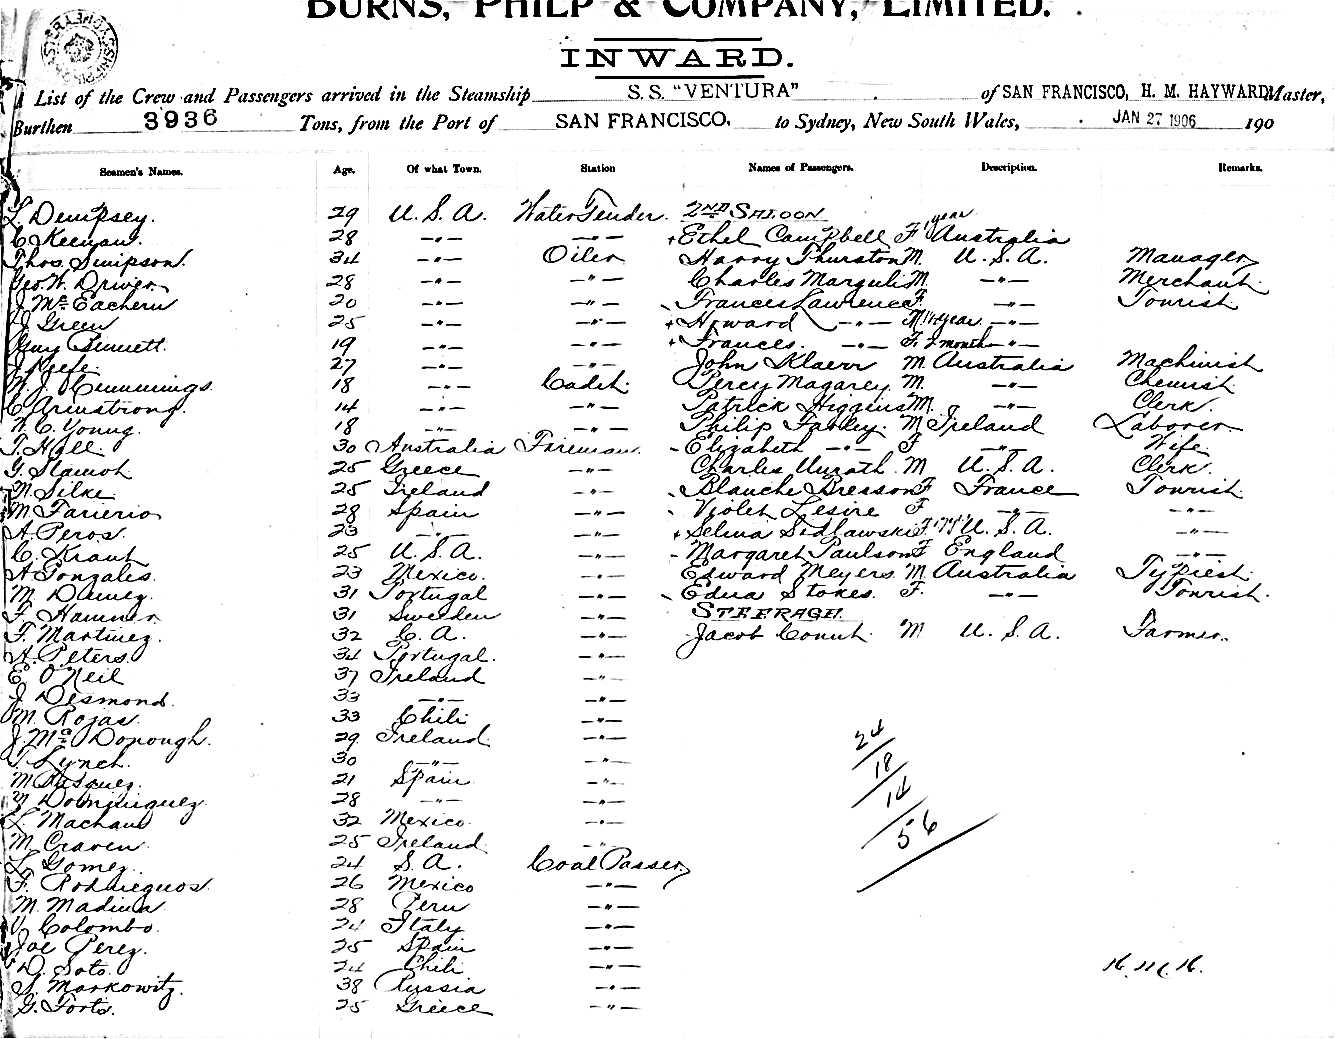 BURNS, PHILP & COMPANY, LIMITED.
INWARD.
A List of the Crew and Passengers arrived in the Steamship S. S. "VENTURA" of SAN FRANCISCO, H. M. HAYWARD Master,
Burthen 3936 Tons, from the Port of SAN FRANCISCO. to Sydney, New South Wales, JAN 27 1906 190
Seamen's Names. Age. Of what Town. Station Names of Passengers. Description. Remarks.
L. Dempsey. 29 U. S. A. Water Tender. 2ND SALOON
C. Keenan. 28 -"- -"- Ethel Campbell F 1 year Australia
Thos. Simpson. 34 -"- Oiler Harry Thurston M. U. S. A. Manager
Geo. W. Driver 28 -"- -"- Charles Marguli M. -"- Merchant
J. McEachern 20 -"- -"- Frances Lawrence F. -"- Tourist
J. Green 25 -"- -"- Howard -"- M 1½ year -"-
Guy Bennett. 19 -"- -"- Frances. -"- F. 2 months -"-
J. Keefe 27 -"- -"- John Klaerr M Australia Machinist
W. J. Cummings. 18 -"- Cadet. Percy Magarey. M. -"- Chemist
C. Armstrong. 14 -"- -"- Patrick Higgins M. -"- Clerk.
W. C. Young. 18 -"- -"- Philip Farley. M Ireland Laborer
T. Hall 30 Australia Fireman. Elizabeth -"- F -"- Wife
G. Stamoh 25 Greece -"- Charles Unrath M U. S. A. Clerk.
N. Silke 25 Ireland -"- Blanche Bresson F France Tourist
M Farierio 28 Spain -"- Violet Lesire F -"- -"-
A. Peros. 23 -"- -"- Selina Sidlawski F U. S. A.
C. Kraut 25 U. S. A. -"- Margaret Paulson F England -"-
A Gonzales. 23 Mexico. -"- Edward Meyers M Australia Typist.
M. Damez 31 Portugal -"- Edna Stokes F. -"- Tourist.
F. Hammer 31 Sweden -"- STEERAGE.
F. Martinez. 32 C. A. -"- Jacob Conut. M U. S. A. Farmer.
A. Peters. 34 Portugal. -"-
E O'Neil 37 Ireland -"-
J. Desmond. 33 -"- -"-
M. Rojas. 33 Chili -"-
J. McDonough. 29 Ireland. -"- 24
T. Lynch. 30 -"- -"- 18
M Vasquez. 21 Spain -"- 14
Y. Dominguez. 28 -"- -"- 56
L. Machau 32 Mexico. -"-
M. Craven. 25 Ireland. -"-
L. Gomez. 24 S. A. Coal Passer,
F. Rodrieguos. 26 Mexico -"-
M. Madina 28 Peru -"-
V. Colombo. 24 Italy -"-
Joe Perez. 25 Spain -"-
D. Soto. 24 Chili -"-
S. Markowitz. 38 Russia -"-
G. Forto. 25 Greece -"-